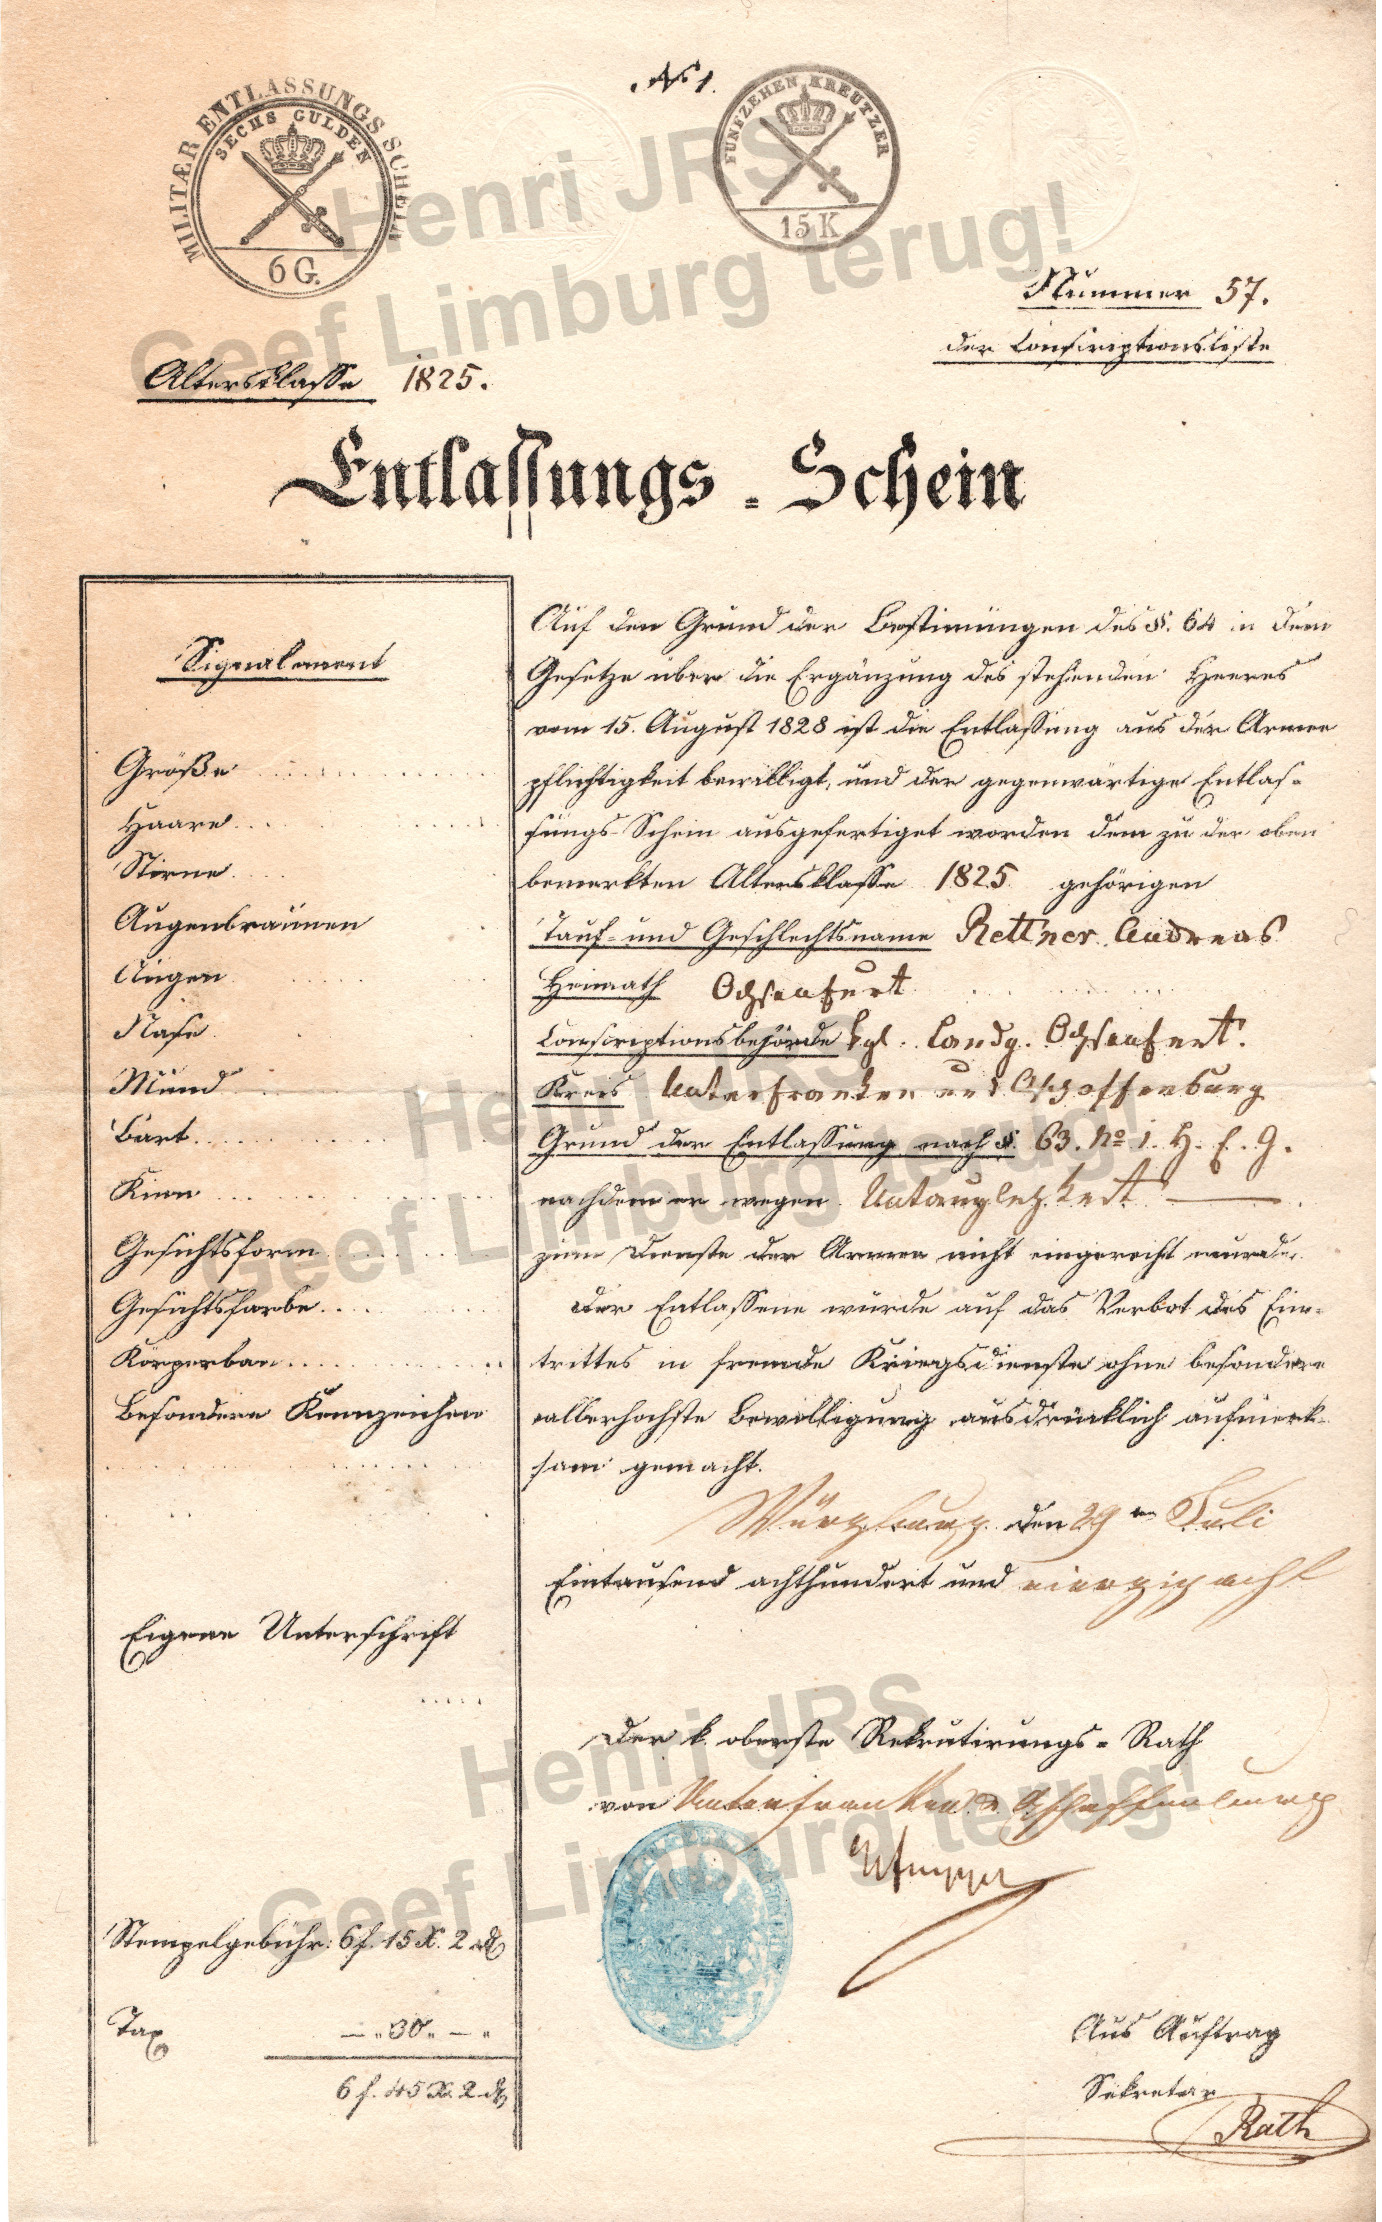 No 1.
MILITÆR ENTLASSUNGS SCHEIN
SECHS GULDEN
6 G.
FÜNFZEHEN KREUTZER
15 K
Nummer 57.
der Conscriptionsliste
Altersklasse 1825.
Entlassungs-Schein
Signalement
Größe
Haare
Stirne
Augenbraunen
Augen
Nase
Mund
Bart
Kinn
Gesichtsform
Gesichtsfarbe
Körperbau
Besondere Kennzeichen
Eigene Unterschrift
Stempelgebühr: 6 f. 15 X. 2 d
Tax — „ 30 „ — „
6 f. 45 X. 2 d
Auf den Grund der Bestimmungen des §. 64 in dem
Gesetze über die Ergänzung des stehenden Heeres
vom 15. August 1828 ist die Entlassung aus der Armee
pflichtigkeit bewilligt, und der gegenwärtige Entlas-
sungs-Schein ausgefertiget worden dem zu der oben
bemerkten Altersklasse 1825 gehörigen
Tauf- und Geschlechtsname Rettner Andreas
Heimath Ochsenfurt
Conscriptionsbehörde kgl. Landg. Ochsenfurt.
Kreis Unterfranken und Aschaffenburg
Grund der Entlassung nach §. 63. No 1. H. E. G.
nachdem er wegen Untauglichkeit
zum Dienste der Armee nicht eingereiht wurde.
Der Entlassene wurde auf das Verbot des Ein-
trittes in fremde Kriegsdienste ohne besondere
allerhöchste Bewilligung ausdrücklich aufmerk-
sam gemacht.
Würzburg den 29ten Juli
Eintausend achthundert und vierzig acht
Der k. oberste Rekrutirungs-Rath
von Unterfranken u. Aschaffenburg
Aus Auftrag
Sekretär
Rath
Henri JRS
Geef Limburg terug!
Henri JRS
Geef Limburg terug!
Henri JRS
Geef Limburg terug!